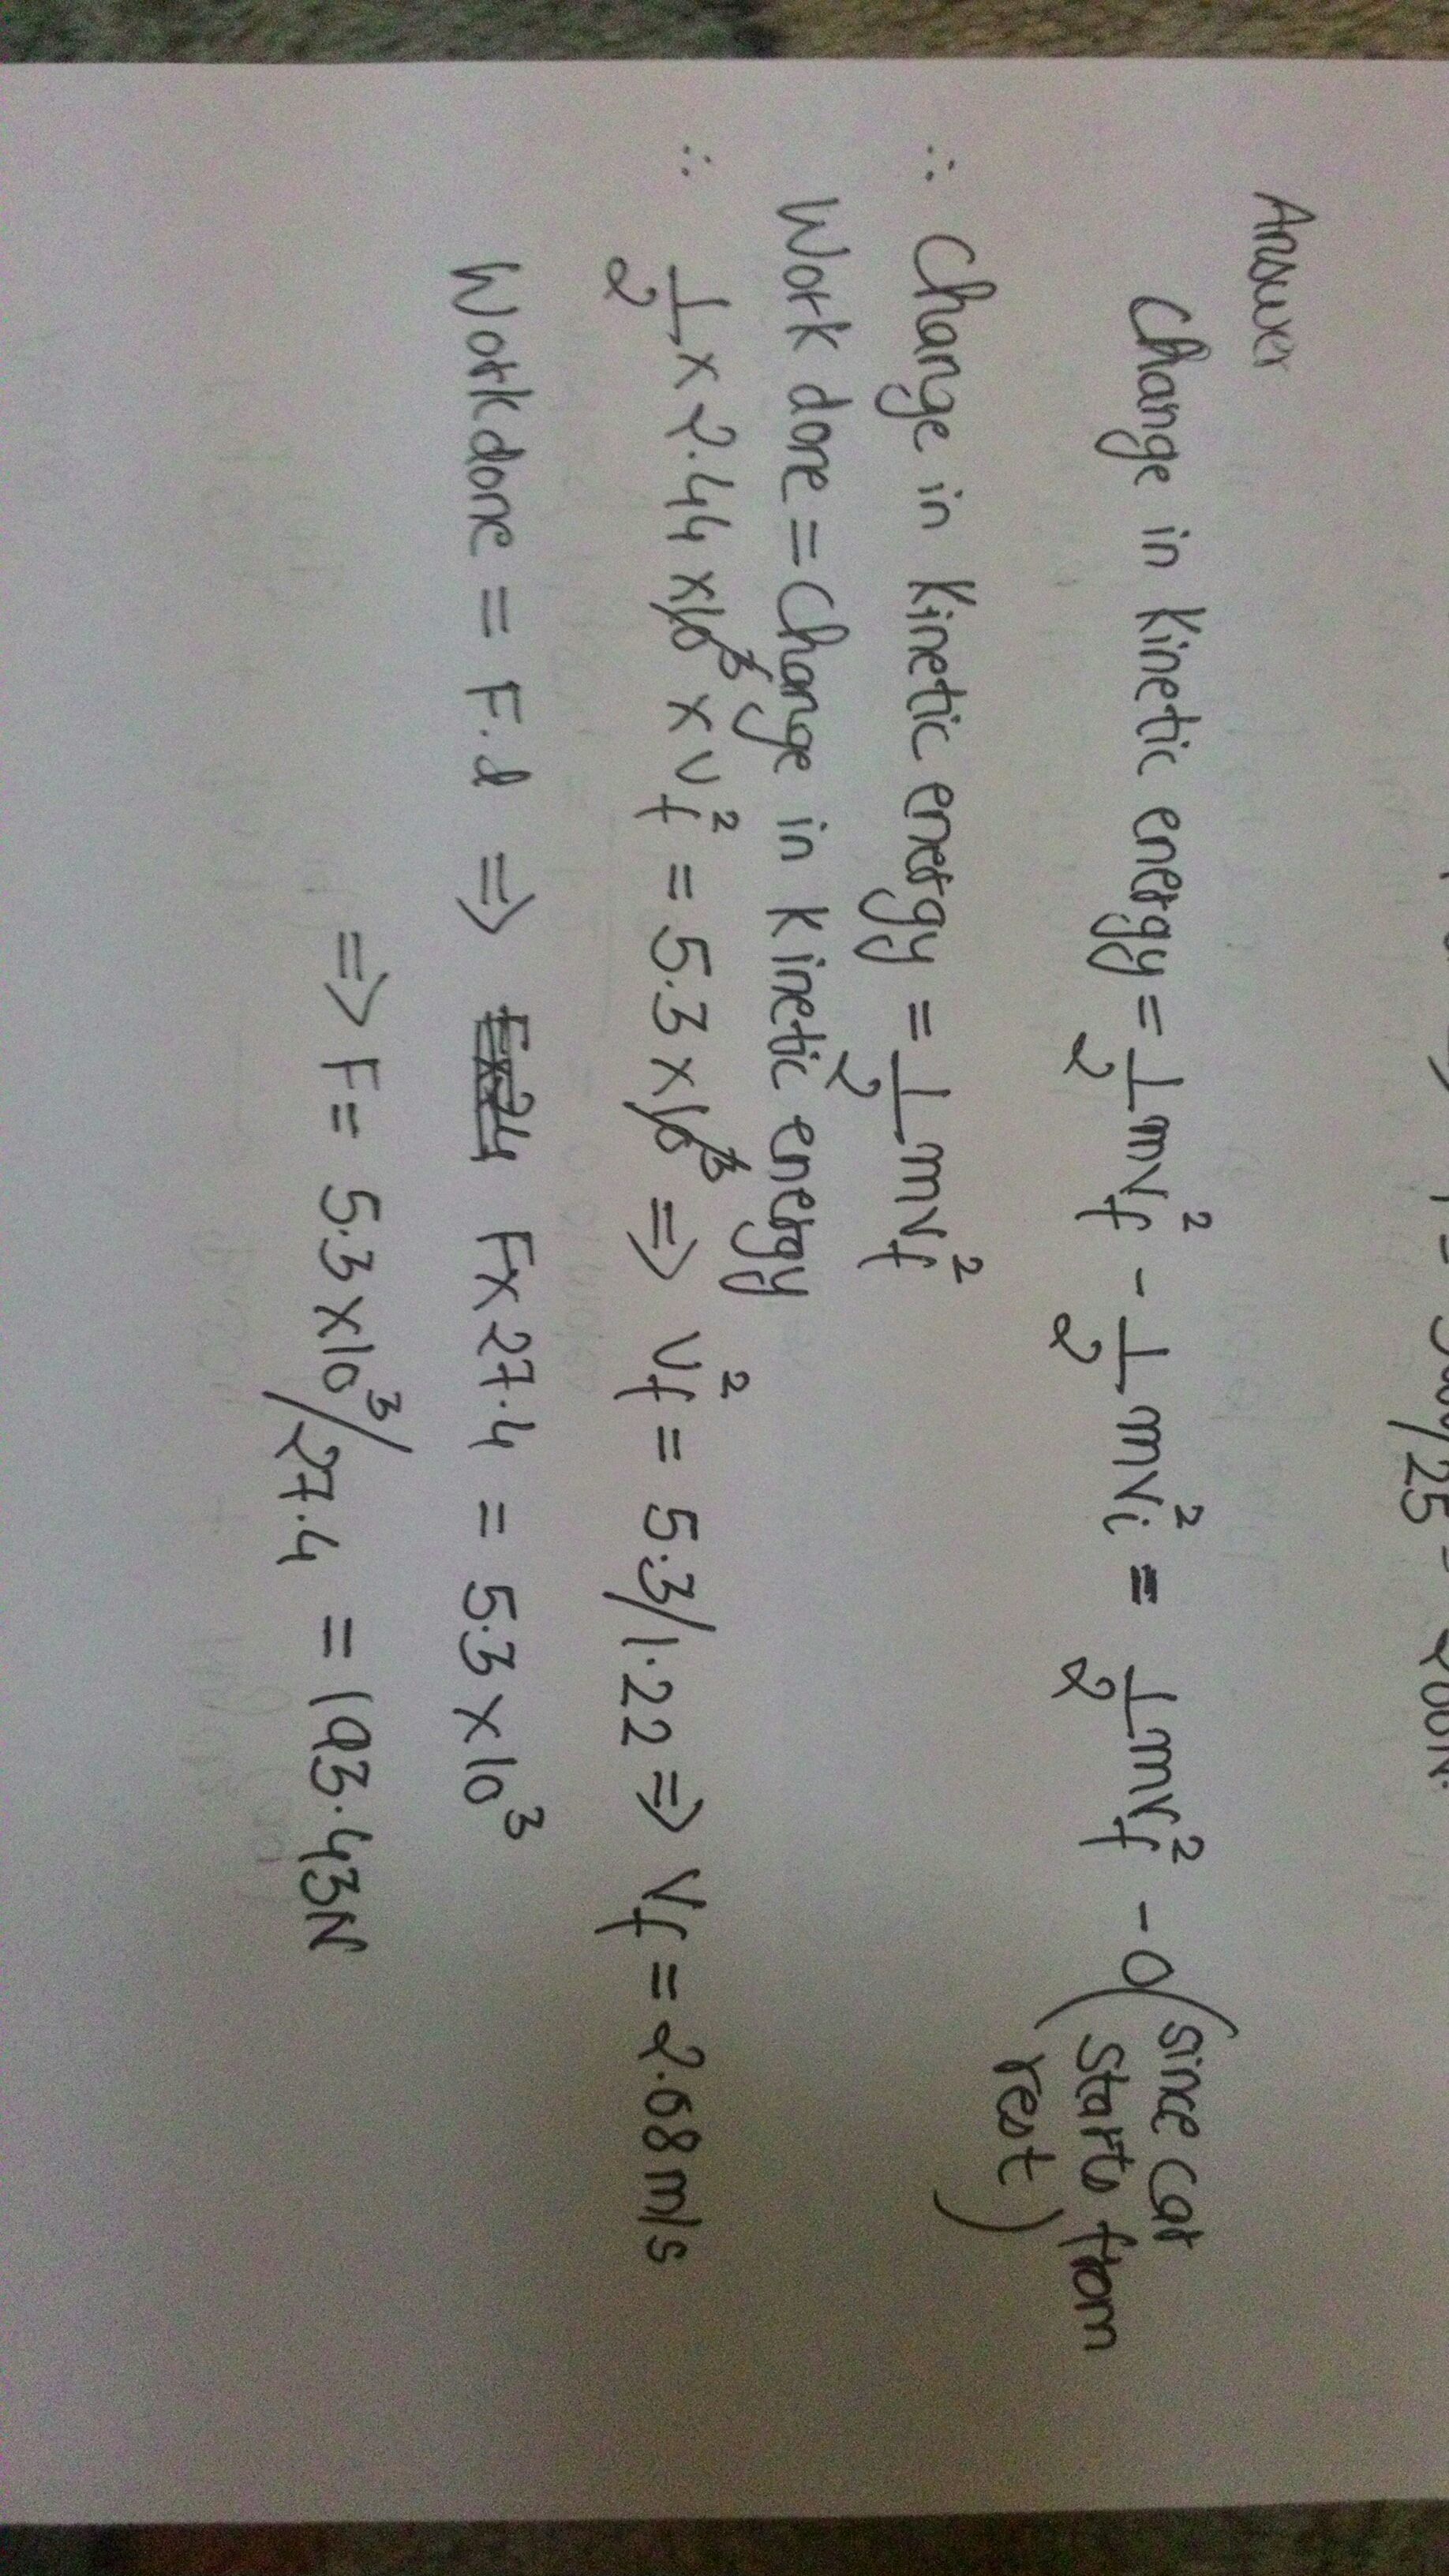 /25 = 200N.
Answer
Change in Kinetic energy = 1/2 mv_f^2 - 1/2 mv_i^2 = 1/2 mv_f^2 - 0 (since car starts from rest)
∴ Change in Kinetic energy = 1/2 mv_f^2
Work done = Change in Kinetic energy
∴ 1/2 x 2.44 x 10^3 x v_f^2 = 5.3 x 10^3 => v_f^2 = 5.3/1.22 => v_f = 2.08 m/s
Work done = F.d => F x 27.4 = 5.3 x 10^3
=> F = 5.3 x 10^3/27.4 = 193.43N